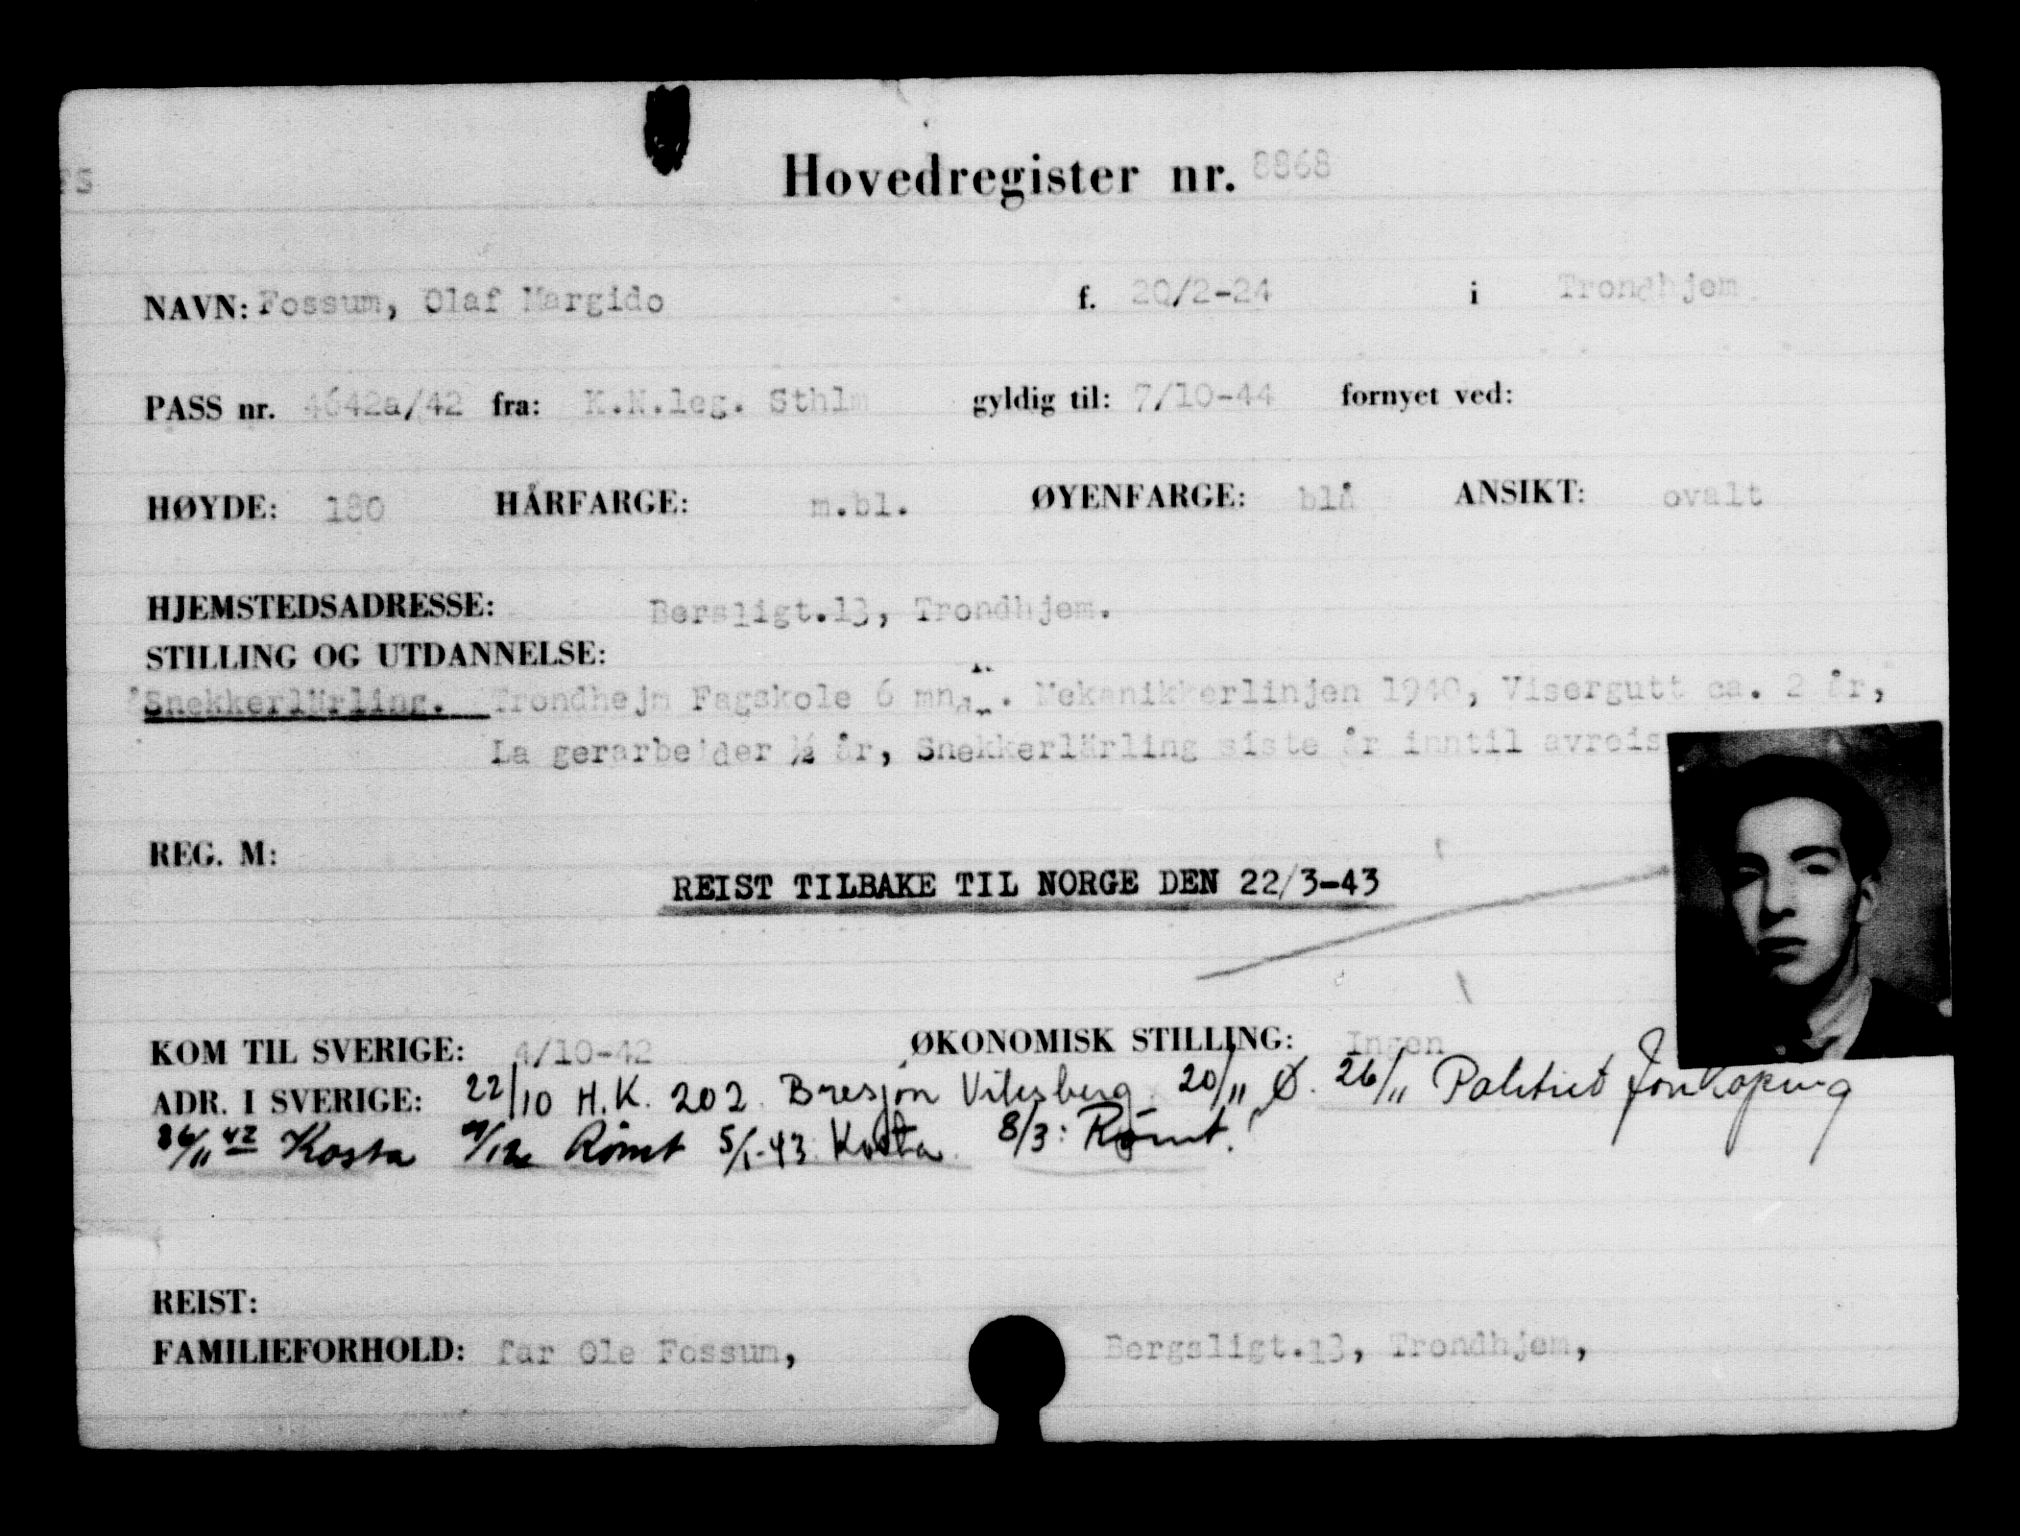 Hovedregister nr. 8868
NAVN: Fossum, Olaf Margido f. 20/2-24 i Trondhjem
PASS nr. 4642a/42 fra: K.N.leg. Sthlm gyldig til: 7/10-44 fornyet ved:
HØYDE: 180 HÅRFARGE: m.bl. ØYENFARGE: blå ANSIKT: ovalt
HJEMSTEDSADRESSE: Bersligt.13, Trondhjem.
STILLING OG UTDANNELSE:
Snekkerlärling. Trondhejm Fagskole 6 mnd. Mekanikkerlinjen 1940, Visergutt ca. 2 år,
La gerarbeider ½ år, Snekkerlärling siste år inntil avreis
REG. M:
REIST TILBAKE TIL NORGE DEN 22/3-43
KOM TIL SVERIGE: 4/10-42 ØKONOMISK STILLING: Ingen
ADR. I SVERIGE: 22/10 H.K. 202 Bresjön 20/11 Ø. 26/11 Jönköping
26/11 42 Kosta Rømt 5/1-43 Kosta 8/3: Rømt.
REIST:
FAMILIEFORHOLD: far Ole Fossum, Bergsligt.13, Trondhjem,